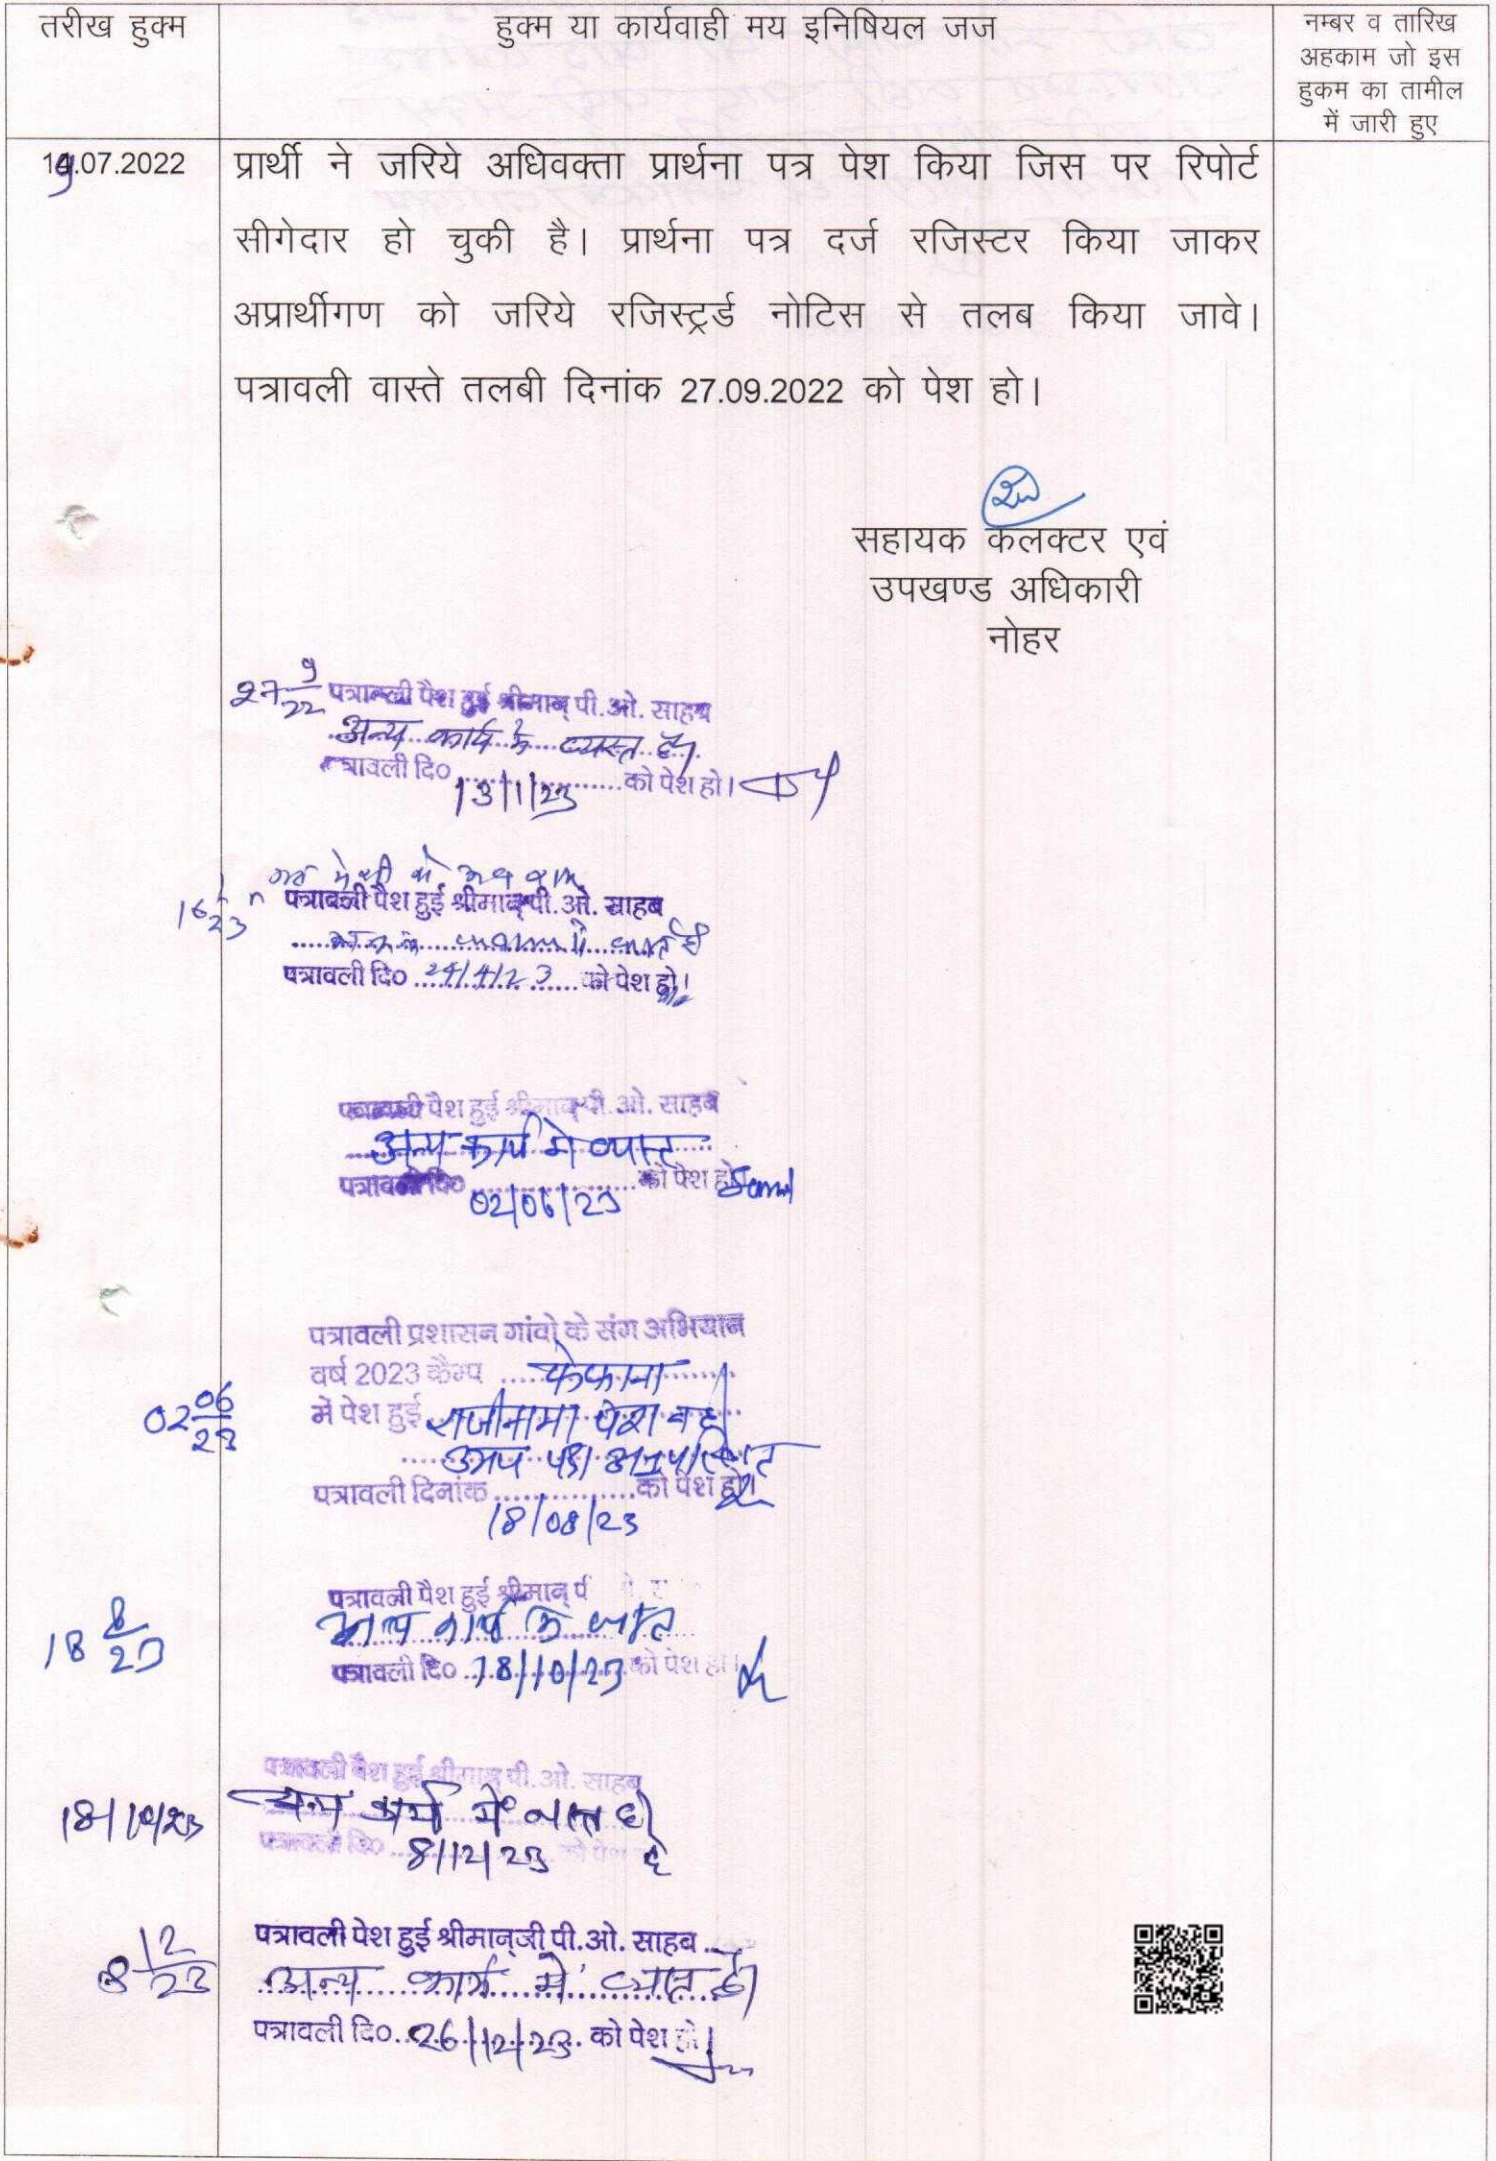 तरीख हुक्म
हुक्म या कार्यवाही मय इनिषियल जज
नम्बर व तारिख
अहकाम जो इस
हुकम का तामील
में जारी हुए
.07.2022
प्रार्थी ने जरिये अधिवक्ता प्रार्थना पत्र पेश किया जिस पर रिपोर्ट
सीगेदार हो चुकी है। प्रार्थना पत्र दर्ज रजिस्टर किया जाकर
अप्रार्थीगण को जरिये रजिस्ट्रर्ड नोटिस से तलब किया जावे।
पत्रावली वास्ते तलबी दिनांक 27.09.2022 को पेश हो।
सहायक कलक्टर एवं
उपखण्ड अधिकारी
नोहर
27 9/22 पत्रावली पैश हुई श्रीमान् पी.ओ. साहब
अन्य कार्य में व्यस्त है।
पत्रावली दि० 13/1/23 को पेश हो।
16 1/23 पत्रावली पैश हुई श्रीमान् पी.ओ. साहब
पत्रावली दि० 24/4/23 को पेश हो।
पत्रावली पैश हुई श्रीमान् पी.ओ. साहब
अन्य कार्य मे व्यस्त
पत्रावली दि० 02/06/23 को पेश हो
पत्रावली प्रशासन गांवो के संग अभियान
वर्ष 2023 कैम्प फेफाना
02 06/23 में पेश हुई राजीनामा पेश नही
उभय पक्ष अनुपस्थित
पत्रावली दिनांक 18/08/23 को पेश हो।
18 8/23 पत्रावली पैश हुई श्रीमान्
अन्य कार्य में व्यस्त
पत्रावली दि० 18/10/23 को पेश हो।
पत्रावली पैश हुई श्रीमान् पी.ओ. साहब
18/10/23 अन्य कार्य में व्यस्त है
पत्रावली दि० 8/12/23 को पेश
8 12/23 पत्रावली पेश हुई श्रीमान्जी पी.ओ. साहब
अन्य कार्य में व्यस्त है।
पत्रावली दि० 26/12/23 को पेश हो।